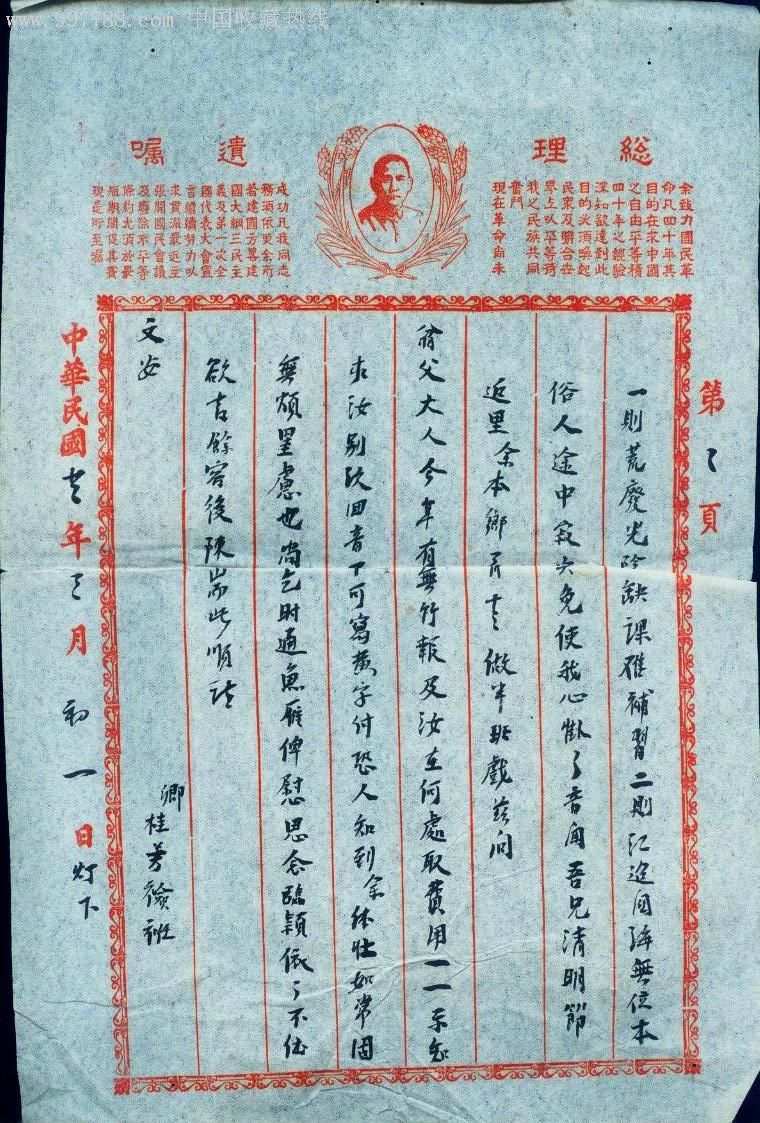 www.997788.com 中国收藏热线
總理
遺囑
余致力國民革
命凡四十年其
目的在求中國
之自由平等積
四十年之經驗
深知欲達到此
目的必須喚起
民衆及聯合世
界上以平等待
我之民族共同
奮鬥
現在革命尚未
成功凡我同志
務須依照余所
著建國方畧建
國大綱三民主
義及第一次全
國代表大會宣
言繼續努力以
求貫澈最近主
張開國民會議
及廢除不平等
條約尤須於最
短期間促其實
現是所至囑
第 頁
一則荒廢光陰缺課難補習二則江 無位本
俗人途中寂 免使我心 了音聞吾兄清明節
返里余本鄉 做半班戲茲問
父大人今年有無竹報及汝在何處取費用一一示知
求汝別致回音 可寫黄字付恐人知到余体壯如常固
無煩罣慮也尚乞時通魚雁俾慰思念臨穎依々不佳
欲言餘容後陳耑此順請
文安
卿桂芳 衽
中華民國 年 月初一日灯下